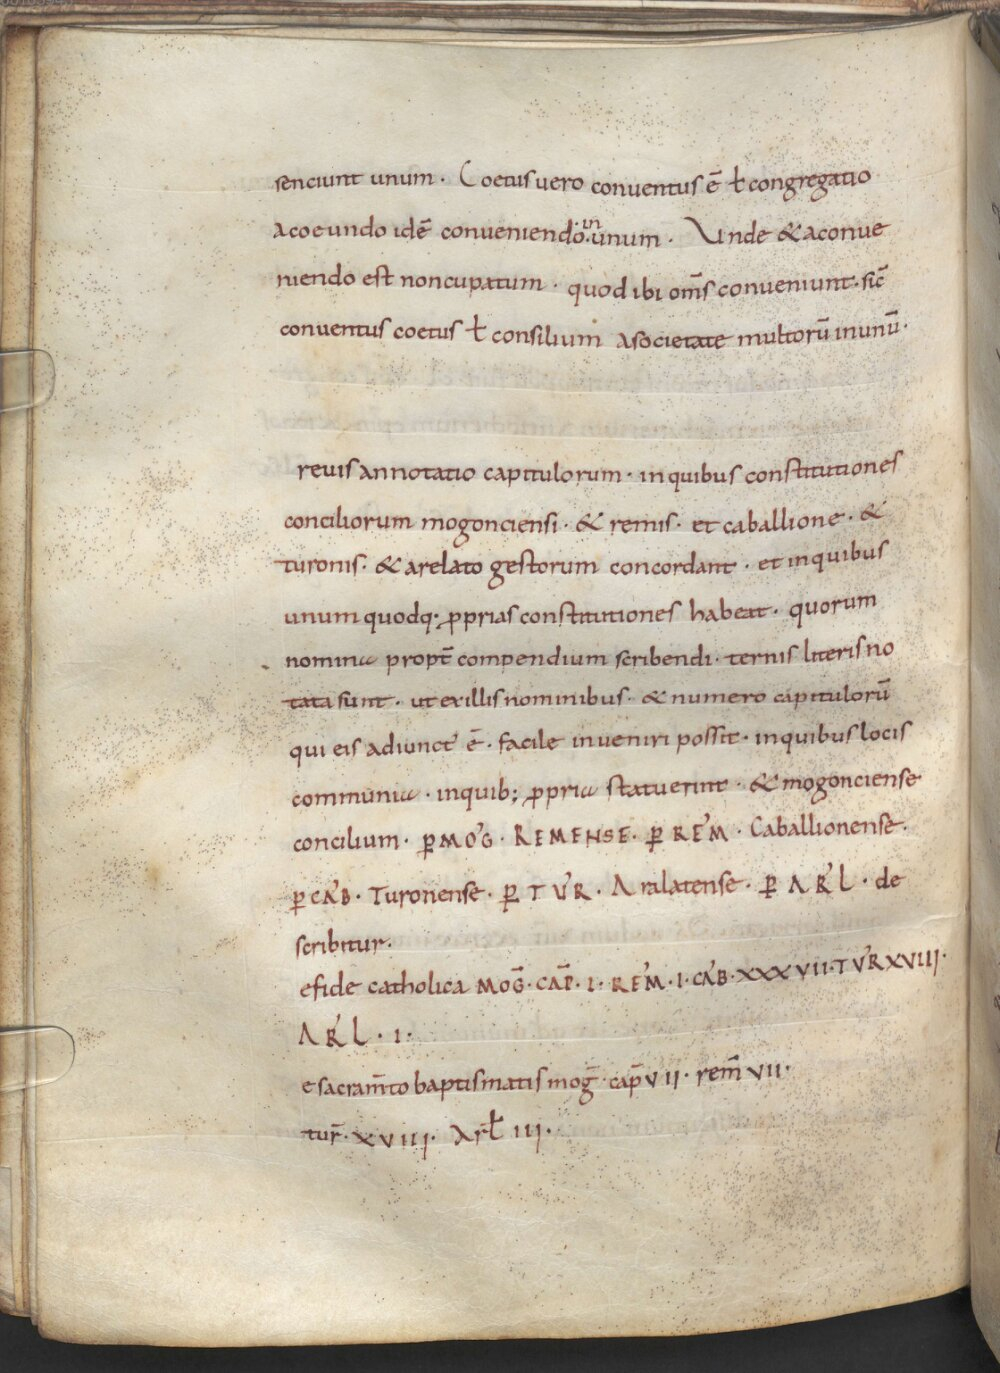 senciunt unum · Coetus vero conventus ē ł congregatio
a coeundo idē conveniendo · in unum · Unde & a conve
niendo est noncupatum · quod ibi om̄s conveniunt · sic̄
conventus coetus ł consilium a societate multorū in unū ·
revis annotatio capitulorum · in quibus constitutiones
conciliorum mogonciensi · & remis · et caballione · &
turonis · & arelato gestorum concordant · et in quibus
unum quodq; ꝓprias constitutiones habeat · quorum
nomina propt̄ compendium scribendi · ternis literis no
tata sunt · ut ex illis nominibus · & numero capitulorū
qui eis adiunct' ē · facile inveniri possit · in quibus locis
communia · in quib; ꝓpria statuerint · & mogonciense
concilium · ꝑ MOG · REMENSE · ꝑ REM · Caballionense ·
ꝑ CAB · Turonense · ꝑ TUR · Aralatense · ꝑ ARL · de
scribitur ·
e fide catholica MOḠ · CAP̄ · I · REM · I · CAB · XXXVII · TUR XVIII ·
ARL · I ·
e sacram̄to baptismatis moḡ · cap̄ VII · rem̄ VII ·
tur̄ · XVIII · Arł III ·